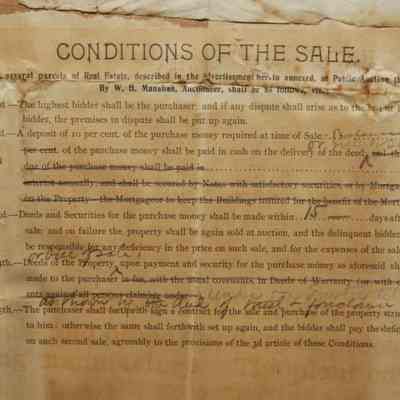 CONDITIONS OF THE SALE.
several parcels of Real Estate, described in the advertisement hereto annexed, at Public Auction
By W. B. Manahan, Auctioneer, shall be as follows, viz.:
The highest bidder shall be the purchaser; and if any dispute shall arise as to the
bidder, the premises in dispute shall be put up again.
A deposit of 10 per cent. of the purchase money required at time of Sale
per cent. of the purchase money shall be paid in cash on the delivery of the deed;
due of the purchase money shall be paid in
annually, and shall be secured by Notes with satisfactory securities, or by
on the Property—the Mortgagor to keep the Buildings insured for the benefit of the
—Deeds and Securities for the purchase money shall be made within 15 days
sale; and on failure the property shall be again sold at auction, and the delinquent bidder
be responsible for any deficiency in the price on such sale, and for the expenses of the
—Deeds of the Property, upon payment and security for the purchase money as aforesaid
made to the purchaser in fee, with the usual covenants, in Deeds of Warranty (or with
against all persons claiming under
as shown in the deed of
—The purchaser shall forthwith sign a contract for the sale and purchase of the property
to him; otherwise the same shall forthwith set up again, and the bidder shall pay the
on such second sale, agreeably to the provisions of the 3d article of these Conditions.